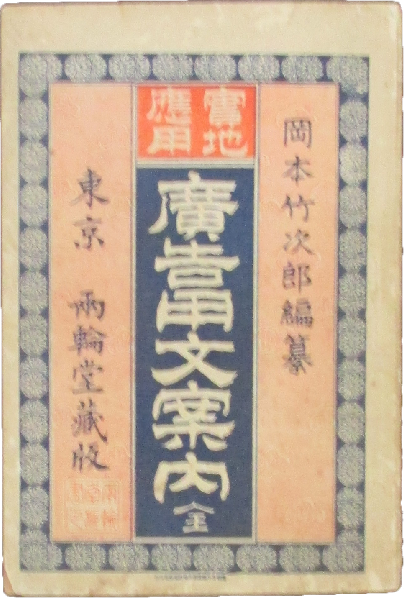 岡本竹次郎編纂
實地
應用
廣告用文案内 全
東京 兩輪堂藏版